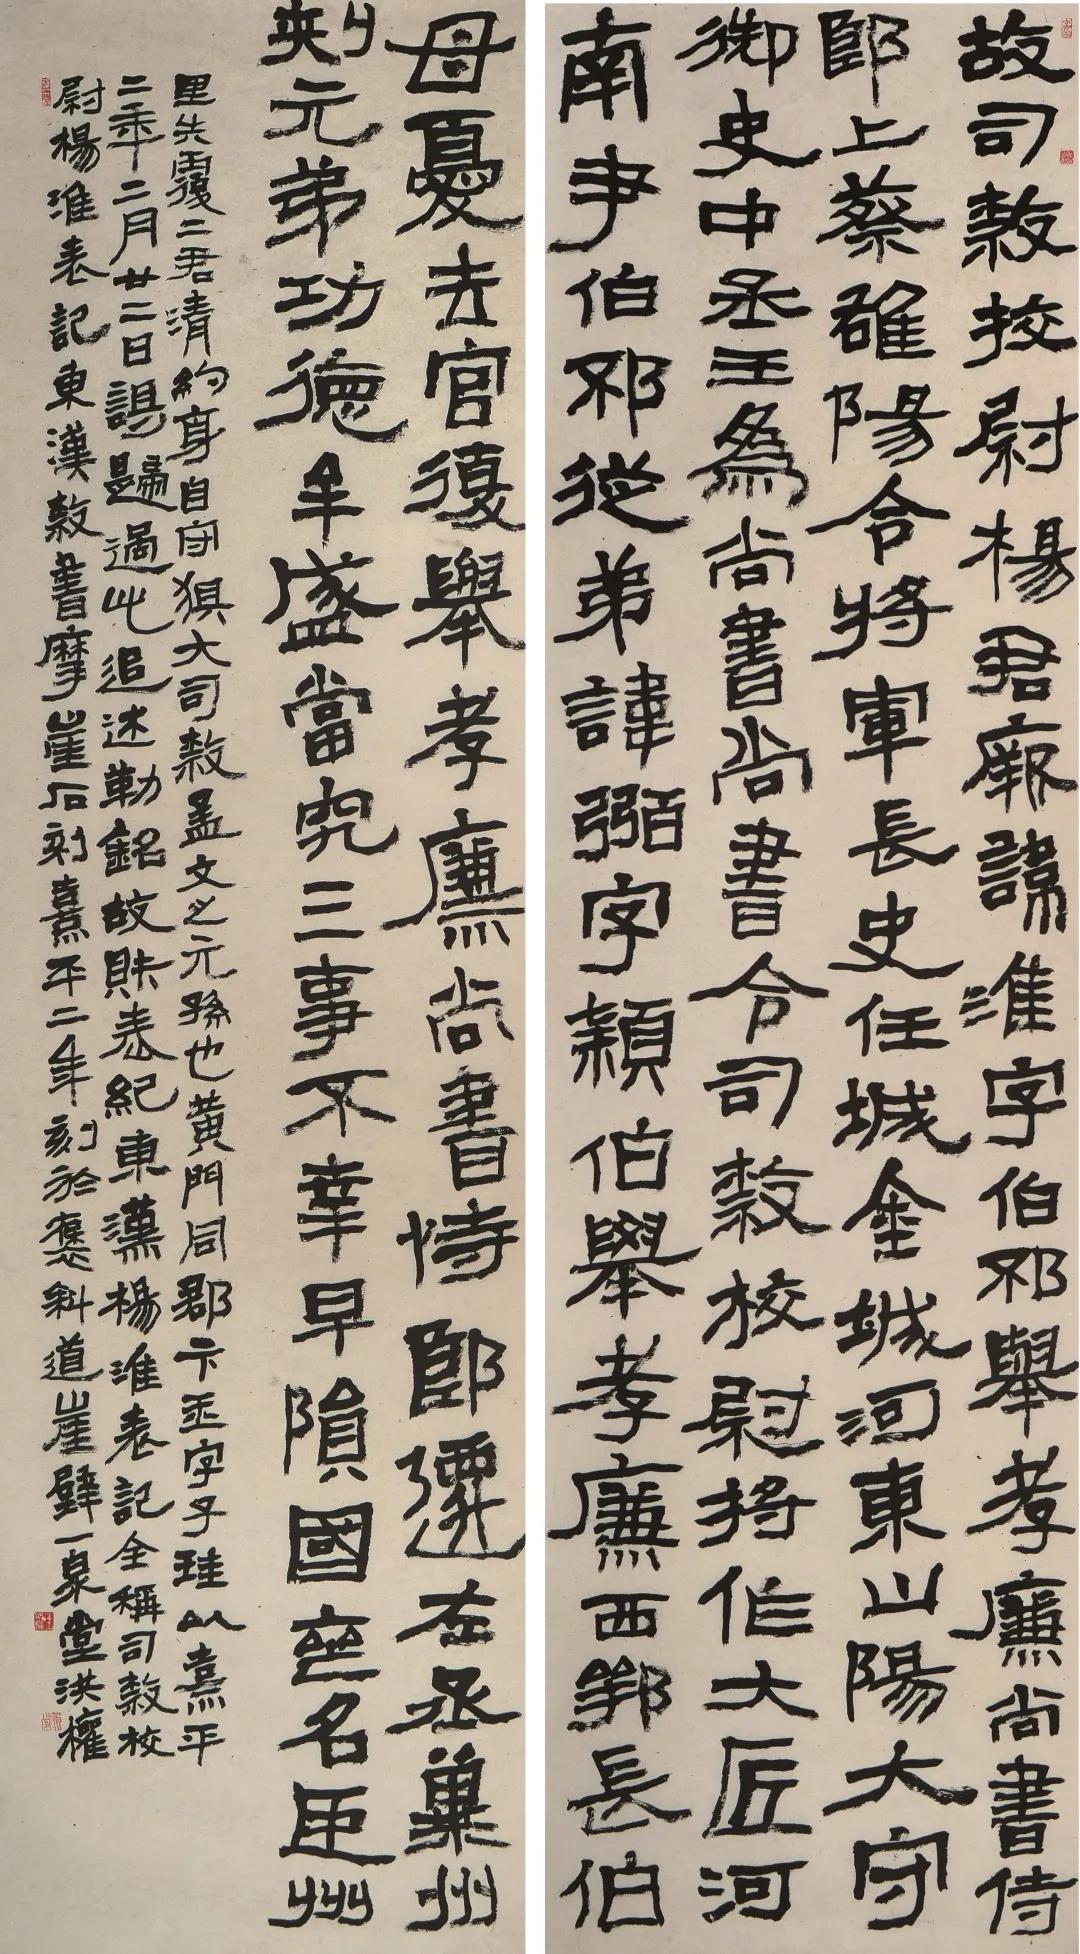 故司隸挍尉楊君厥諱淮字伯邳舉孝廉尚書侍
郎上蔡雒陽令將軍長史任城金城河東山陽大守
御史中丞王為尚書尚書令司隸校尉將作大匠河
南尹伯邳從弟諱弼字穎伯舉孝廉西鄂長伯
母憂去官復舉孝廉尚書侍郎遷左丞冀州
刺元弟功德牟盛當究三事不幸早隕國喪名臣州
里失覆二君清約身自守俱大司隸孟文之元孫也黃門同郡卞玉字子珪以熹平
二年二月廿二日謁歸過此追述勒銘故財表紀東漢楊淮表記全稱司隸校
尉楊淮表記東漢隸書摩崖石刻熹平二年刻於褒斜道崖壁一泉堂洪權